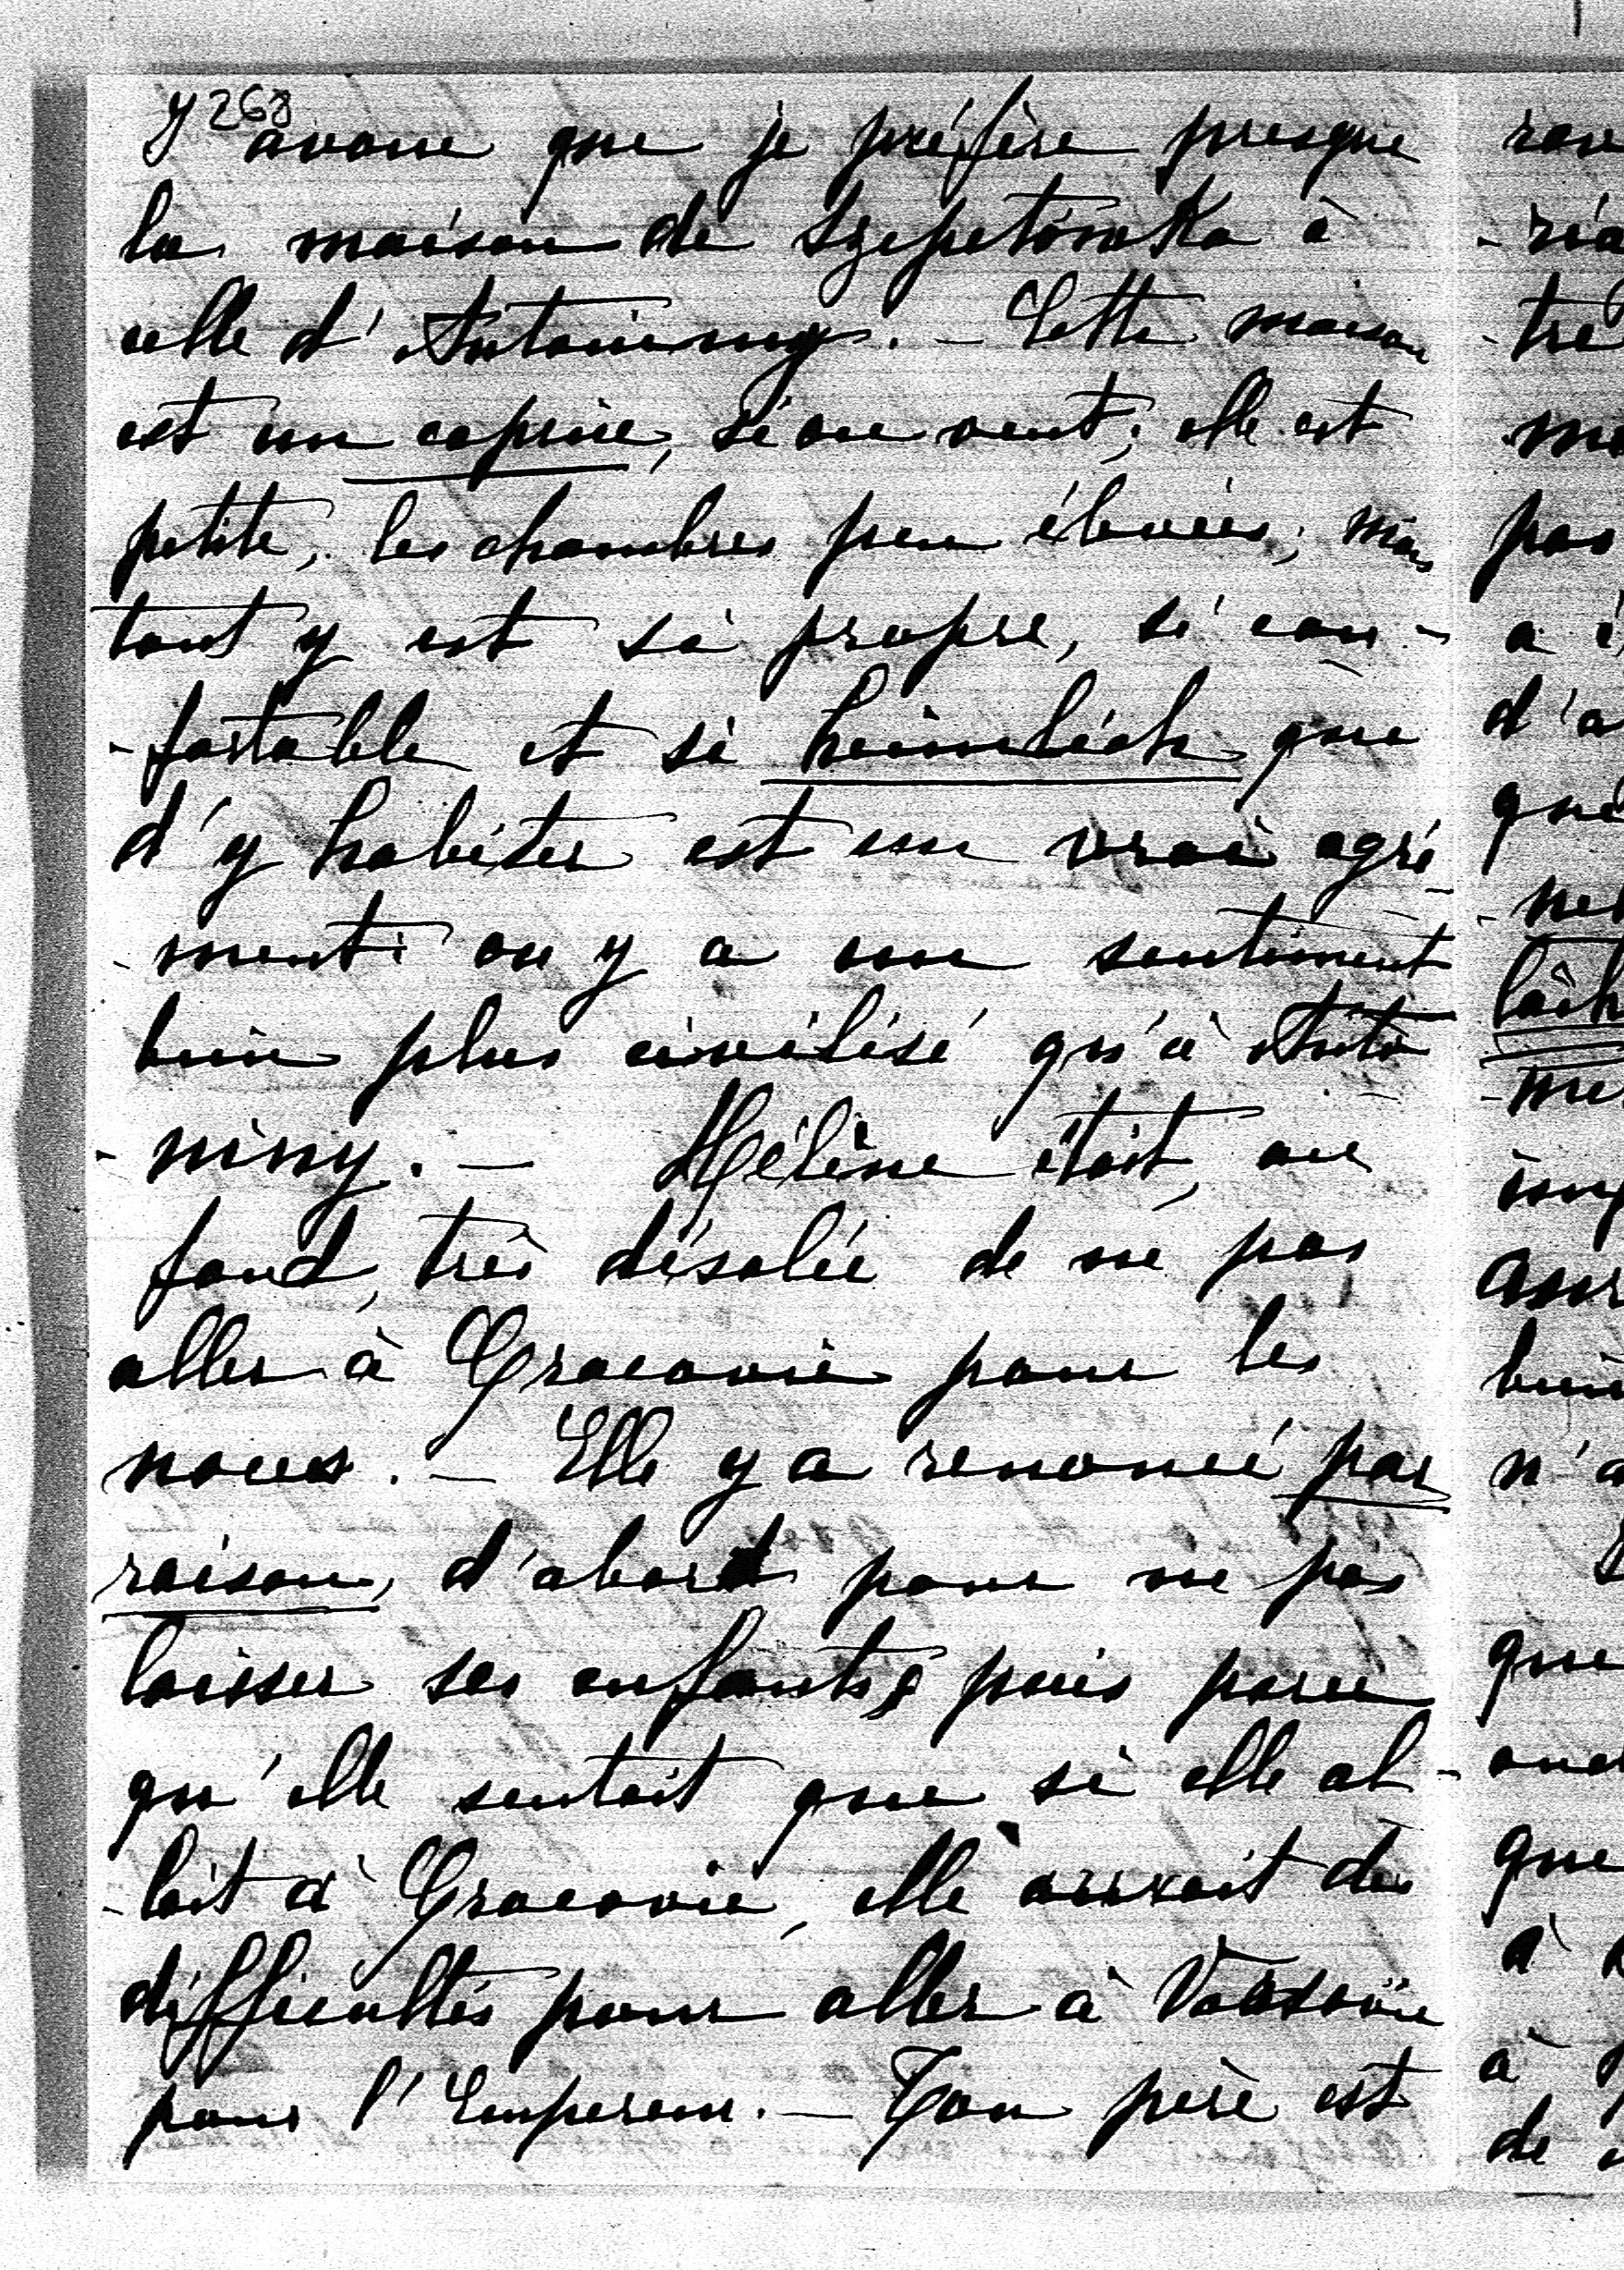 268
J'avoue que je préfère presque
la maison de Szepetówka à
celle d'Antoniny. — Cette maison
est un caprice, si on veut; elle est
petite, les chambres peu élevées; mais
tout y est si propre, si con-
-fortable et si heimlich que
d'y habiter est un vrai agré-
-ment: on y a un sentiment
bien plus civilisé qu'à Anto
-niny. — Hélène était, au
fond, très désolée de ne pas
aller à Cracovie pour les
noces. — Elle y a renoncé par
raison, d'abord pour ne pas
laisser ses enfants; puis parce
qu'elle sentait que si elle al-
-lait à Cracovie, elle aurait des
difficultés pour aller à Varsovie
pour l'Empereur. — Ton père est